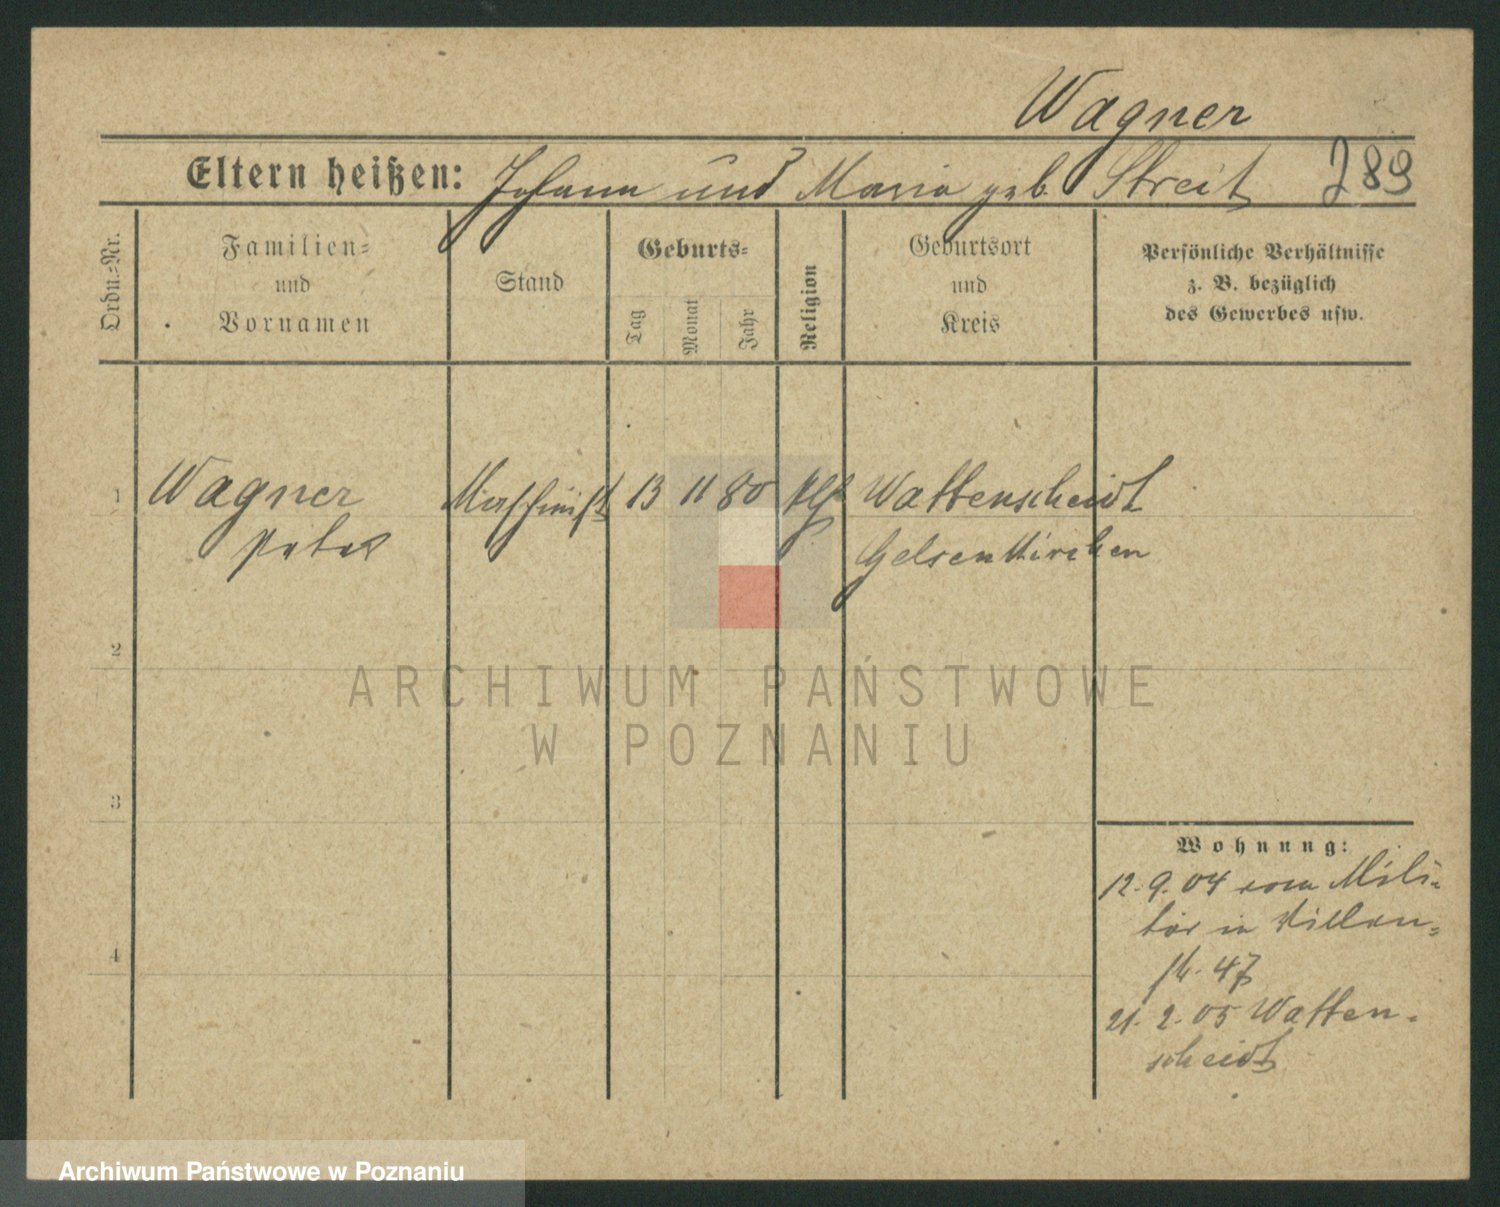 Wagner
Eltern heißen: Johann und Maria geb. Streit 289
Ordn.=Nr.
Familien=
und
Vornamen
Stand
Geburts=
Tag
Monat
Jahr
Religion
Geburtsort
und
Kreis
Persönliche Verhältnisse
z. B. bezüglich
des Gewerbes usw.
1 Wagner Maschinist 13 11 80 Wattenscheidt
Peter Gelsenkirchen
2
ARCHIWUM PAŃSTWOWE
W POZNANIU
3
Wohnung:
12.9.04 vom Mili=
tär in
47
4
21.2.05 Watten=
scheidt
Archiwum Państwowe w Poznaniu